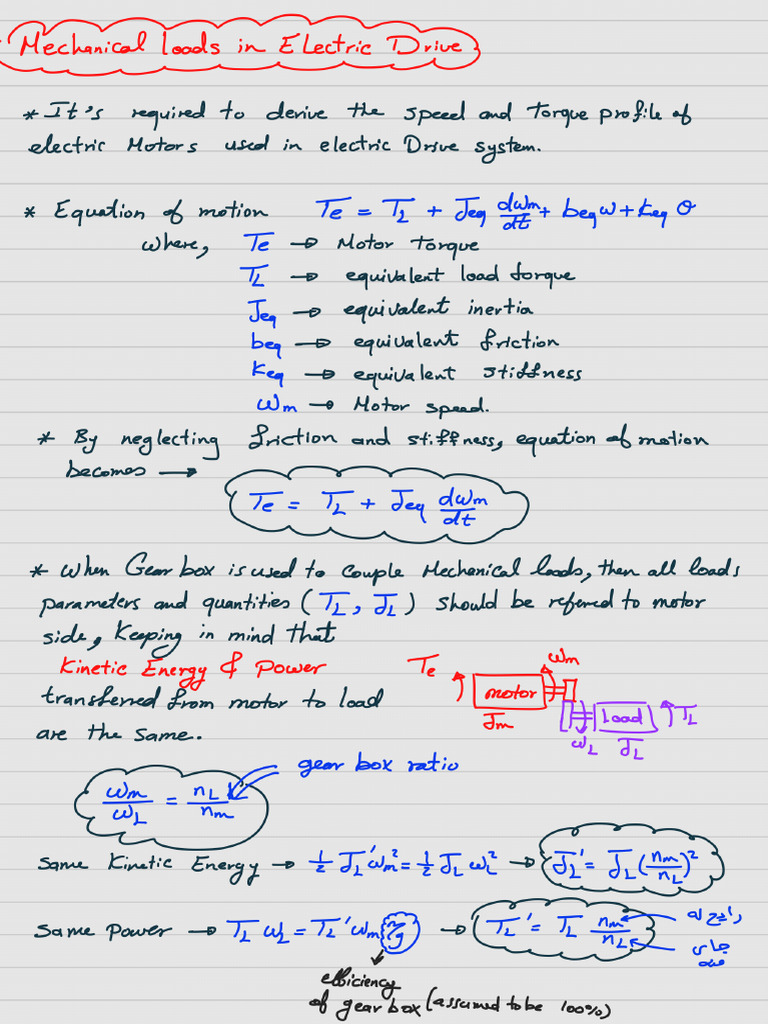 Mechanical loads in Electric Drive
* It's required to derive the speed and torque profile of
electric Motors used in electric Drive system.
* Equation of motion Te = TL + Jeq dωm/dt + beq ω + Keq θ
where, Te → Motor torque
TL → equivalent load torque
Jeq → equivalent inertia
beq → equivalent friction
Keq → equivalent stiffness
ωm → Motor speed.
* By neglecting friction and stiffness, equation of motion
becomes →
Te = TL + Jeq dωm/dt
* When Gear box is used to couple Mechanical loads, then all loads
parameters and quantities (TL, JL) should be referred to motor
side, Keeping in mind that
Kinetic Energy & Power
transferred from motor to load
are the same.
Te ωm
motor
Jm
Load TL
ωL JL
gear box ratio
ωm/ωL = nL/nm
Same Kinetic Energy → 1/2 JL' ωm² = 1/2 JL ωL² → JL' = JL (nm/nL)²
Same power → TL ωL = TL' ωm ηg → TL' = TL nm/nL
رايح له
جاي
منه
efficiency
of gear box (assumed to be 100%)